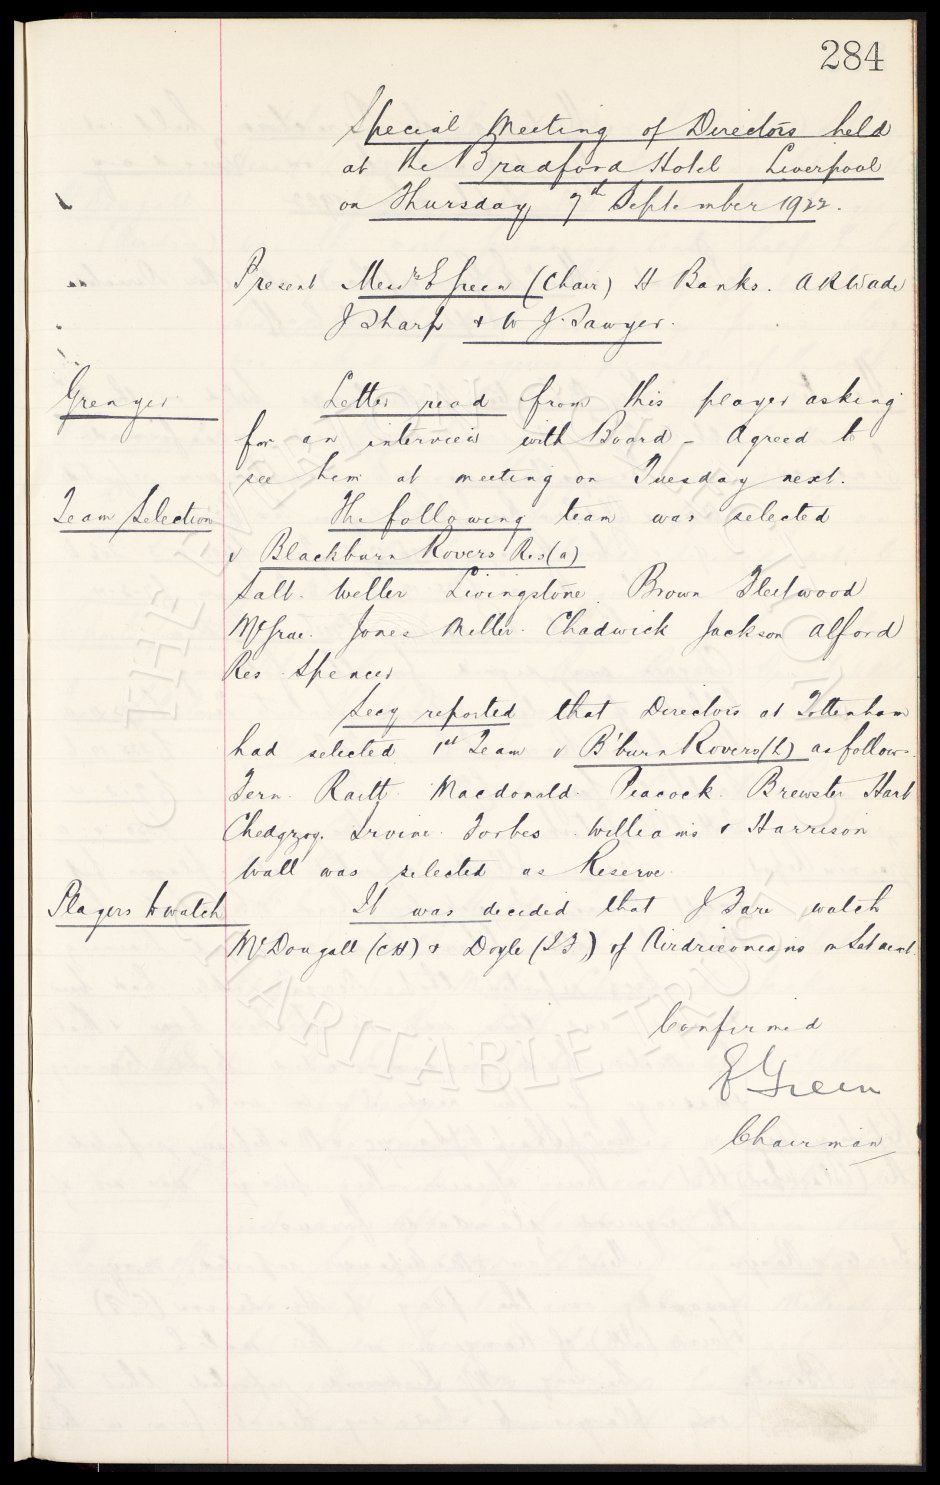 284
Special Meeting of Directors held
at the Bradford Hotel Liverpool
on Thursday 7th September 1922.
Present Messrs E Green (Chair) H Banks. A R Wade
J Sharp & W J. Sawyer.
Grenyer Letter read from this player asking
for an interview with Board - Agreed to
see him at meeting on Tuesday next.
Team Selection The following team was selected
v Blackburn Rovers Res (a)
Salt. Weller Livingstone. Brown Fleetwood
McGrae. Jones Miller. Chadwick Jackson Alford
Res Spencer
Secy reported that Directors at Tottenham
had selected 1st Team v B'burn Rovers (h) as follows
Fern. Raitt. Macdonald. Peacock. Brewster Hart
Chedgzoy. Irvine. Forbes. Williams & Harrison
Wall was selected as Reserve.
Players to watch It was decided that J Fare watch
McDougall (CH) & Doyle (IF) of Airdrieonians
Confirmed
E Green
Chairman
THE EVERTON COLLECTION
CHARITABLE TRUST